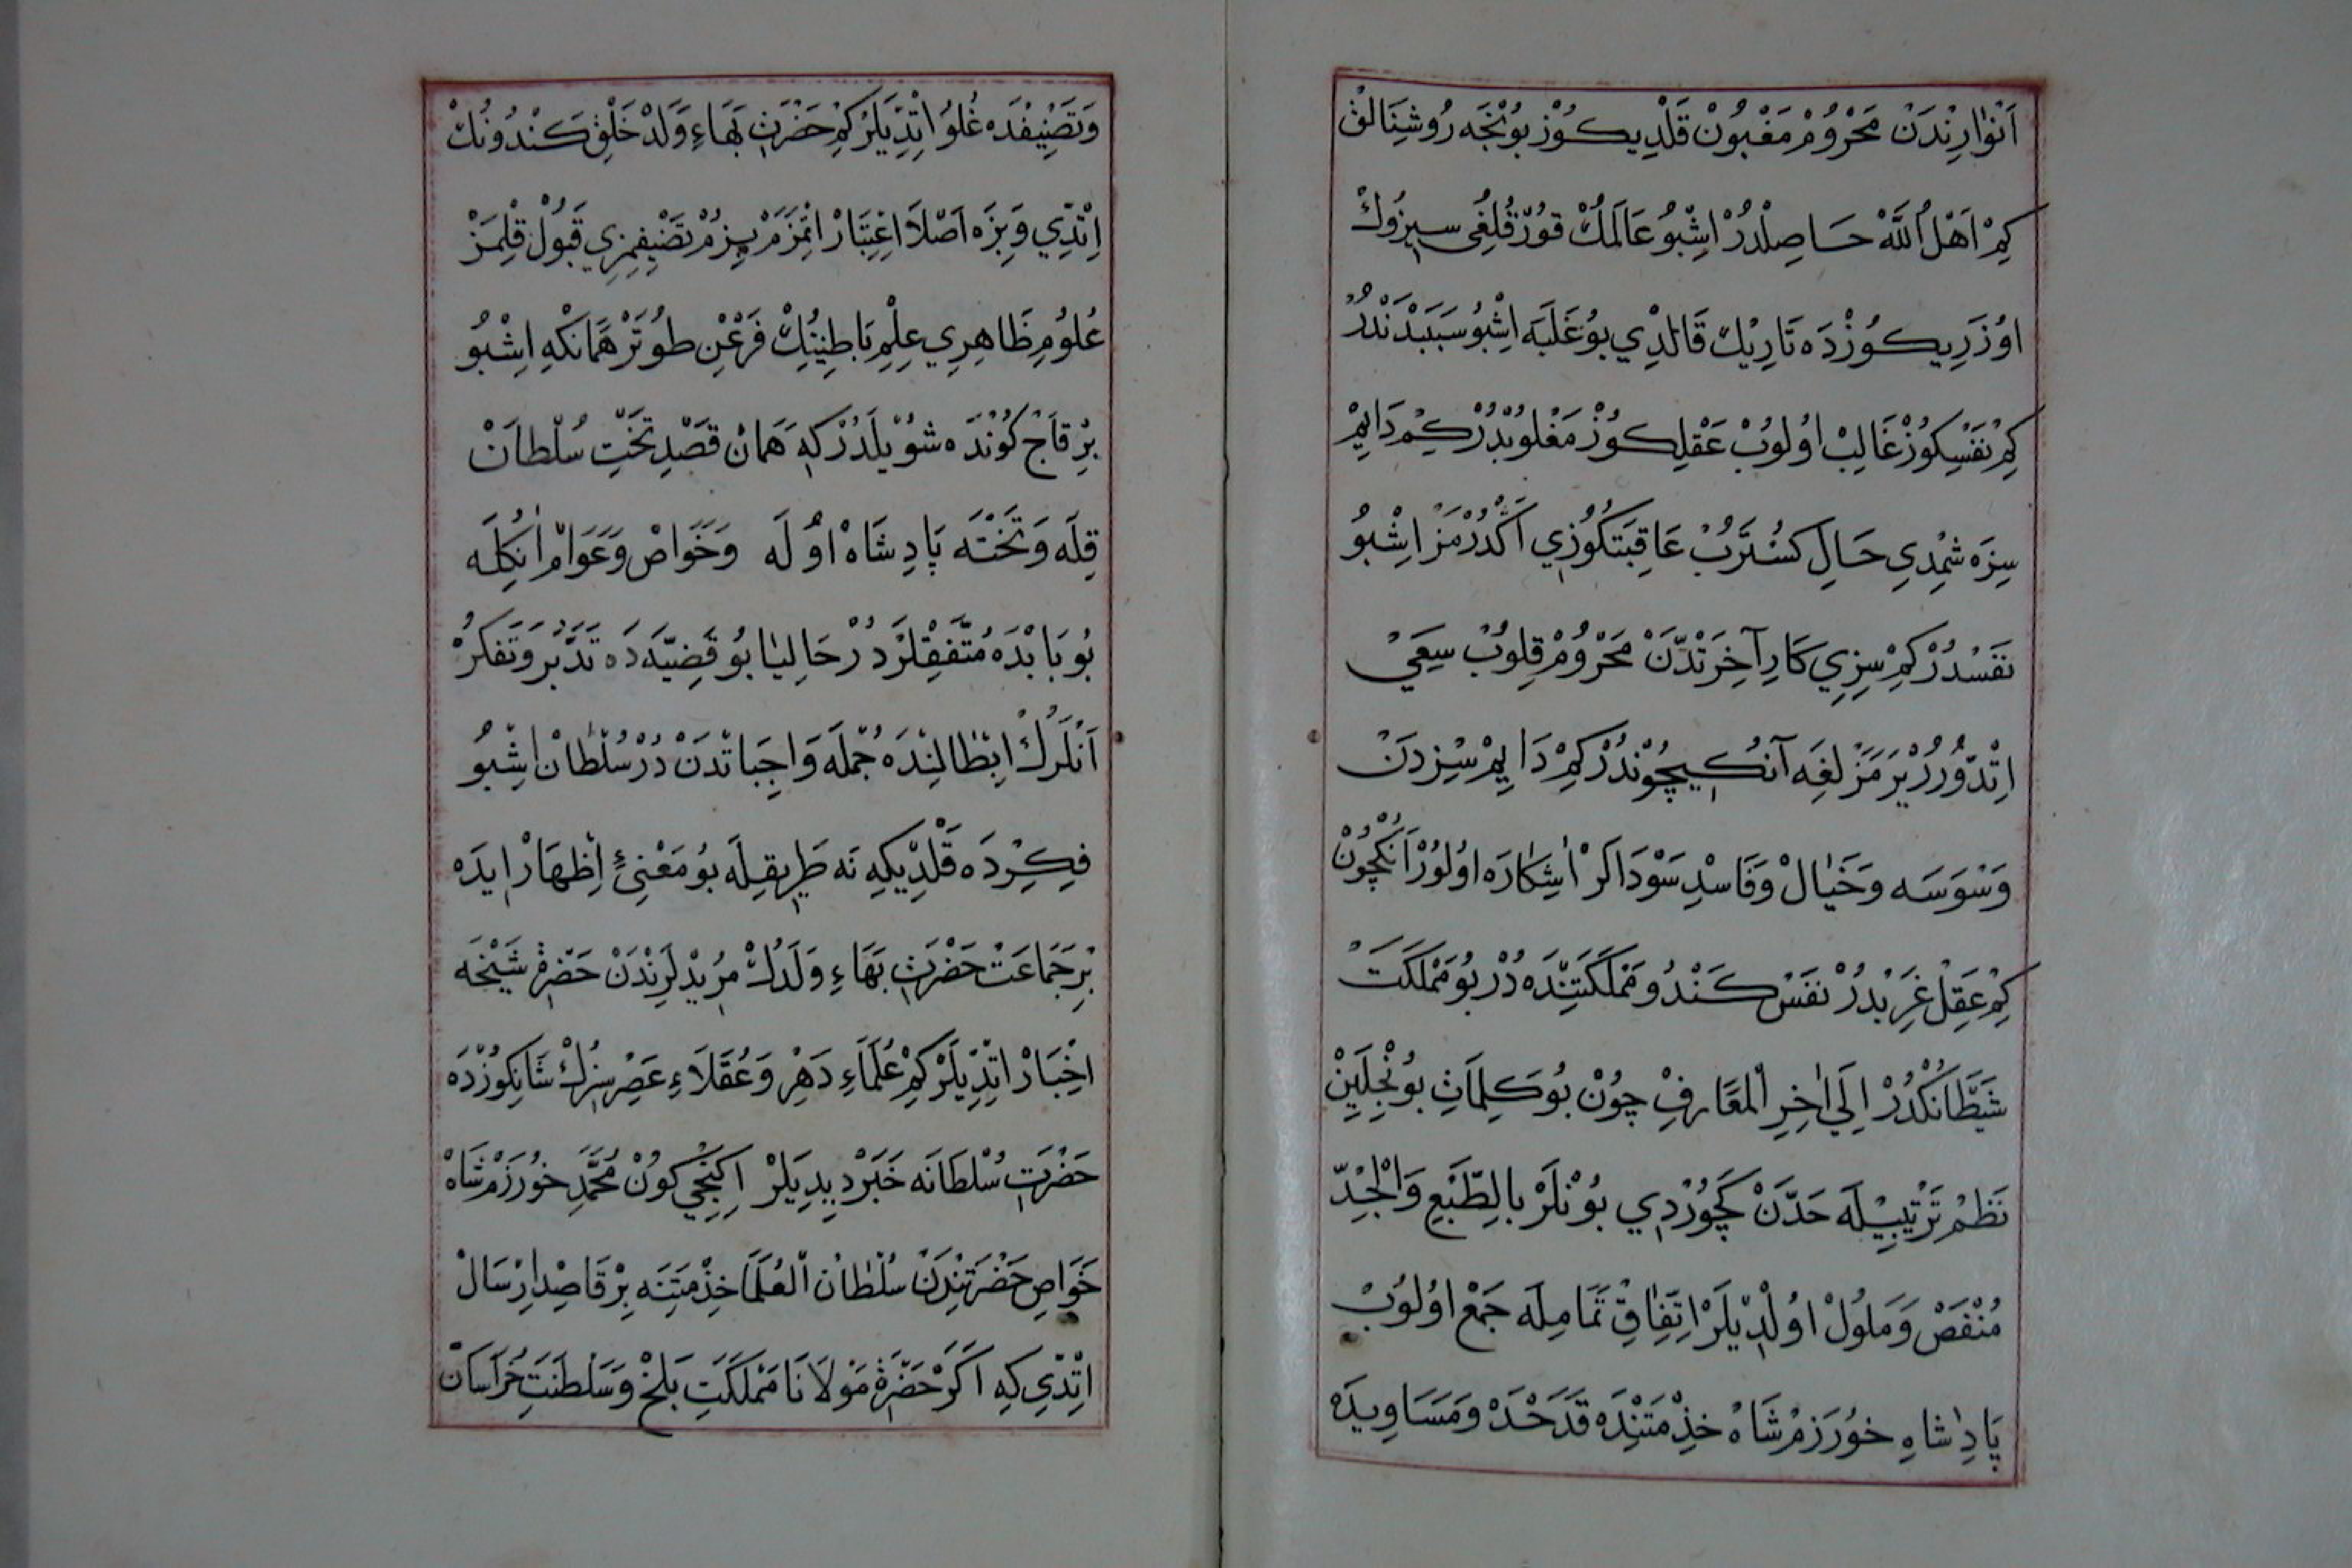 اَنْوٰارِنْدَنْ مَحْرُومْ مَغْبُونْ قَلْدِيكُوزْ بُونْجَه رُوشِنَالِقْ
كِمْ اَهْلُ اللّٰهْ حَاصِلْدُرْ اِشْبُو عَالَمُكْ قُورْقُلِغِى سِيزُوكْ
اوُزَرِيكُوزْدَه تَارِيكْ قَالْدِي بُو غَلَبَه اِشْبُو سَبَبْدَنْدُرْ
كِمْ نَفْسِكُوزْ غَالِبْ اوُلُوبْ عَقْلِكُوزْ مَغْلُوبْدُرْ كِمْ دَايِمْ
سِزَه شِمْدِي حَالِ كُسْتَرُبْ عَاقِبَتَكُوزِي آكْدُرْمَزْ اِشْبُو
نَفَسْدُرْ كِمْ سِزِي كَارِ آخِرَتْدَنْ مَحْرُومْ قِلُوبْ سِعَيْ
اِتْدُورُرْ يَرَمَزْلِغِه آنُكِيچُونْدُرْ كِمْ دَايِمْ سِزِدَنْ
وَسْوَسَه وَخَيٰالْ وَفَاسْدِ سَوْدَالَرْ اٰشِكَارَه اوُلُورْ اَنُكْچُونْ
كِمْ عَقِلْ غَرِبْدُرْ نَفَسْ كَنْدُو مَمْلَكَتِنْدَه دُرْ بُو مَمْلَكَتْ
شَيْطَانُكْدُرْ اِلَي اٰخِرِ الْمَعَارِفْ چُونْ بُو كَلِمَاتِ بُونْجِلَيِنْ
نَظْمْ تَرْتِيبِيْلَه حَدَّنْ كَچُورْدِي بُونْلَرْ بِالطَّبْعِ وَالْجِدّ
مُنْقَصْ وَمَلُولْ اوُلْدِيلَرْ اِتِّفٰاقِ تَمَامِلَه جَمْعْ اوُلُوبْ
پَادِشٰاهِ خُورَزمْشَاهْ خِذْمَتِنْدَه قَدَحْدَه وَمَسَاوِيدَه
وَتَصْنِيفْدَه غُلُوُ اِتْدِيلَرْ كِمْ حَضْرَتِ بَهَاءِ وَلَدْ خَلْقِ كَنْدُونُكْ
اِتْدِّي وَبِزَه اَصْلَا اِعْتِبَارْ اِتْمَزْ هَمْ بِزِمْ تَصْنِيفِمِزِي قَبُولْ قِلْمَزْ
عُلُومِ ظَاهِرِي عِلْمِ بَاطِنِيْنُكْ فَرْعِنْ طُوتَرْ هَمَانْكِه اِشْبُو
بِرْقَاجْ كُونْدَه شُوُيلَدُرْ كِه هَمَانْ قَصْدِ تَخْتِ سُلْطَانْ
قِلَه وَتَخْتَه پَادِشَاهْ اوُلَه وَخَوَاصْ وَعَوَامْ اٰنُكِلَه
بُو بَابْدَه مُتَّفَقْلَرْدُرْ حَالِيٰا بُو قَضِيَّه دَه تَدَبُّرْ وَتَفَكُرْ
اَنْلَرُكْ اِبْطٰالِنْدَه جُمْلَه وَاجِبَاتْدَنْ دُرْ سُلْطٰانْ اِشْبُو
فِكِرْدَه قَلْدِيكِه نَه طَرِيقِلَه بُو مَعْنِيْ اِظْهَارْ اِيدَه
بِرْ جَمَاعَتْ حَضْرَتِ بَهَاءِ وَلَدُكْ مُرِيدْلَرِنْدَنْ حَضْرَةِ شَيْخَه
اِخْبَارْ اِتْدِيلَرْ كِمْ عُلَمَاءِ دَهْرِ وَعُقَلَاءِ عَصِرْ سِزُكْ شَانِكُوزْدَه
حَضْرَتِ سُلْطَانَه خَبَرْ دِيدِيلَرْ اِكِنْجِي كُونْ مُحَمَّدِ خُورَزمْشَاهْ
خَوَاصِ حَضْرَتِنْدِنْ سُلْطٰانُ الْعُلَمَا خِذْمَتِنَه بِرْ قَاصِدْ اِرْسَالْ
اِتْدِّي كِه اَكَرْ حَضْرَةِ مَوْلَانَا مَمْلَكَتِ بَلْخْ وَسَلْطَنَتِ خُرَاسَانْ